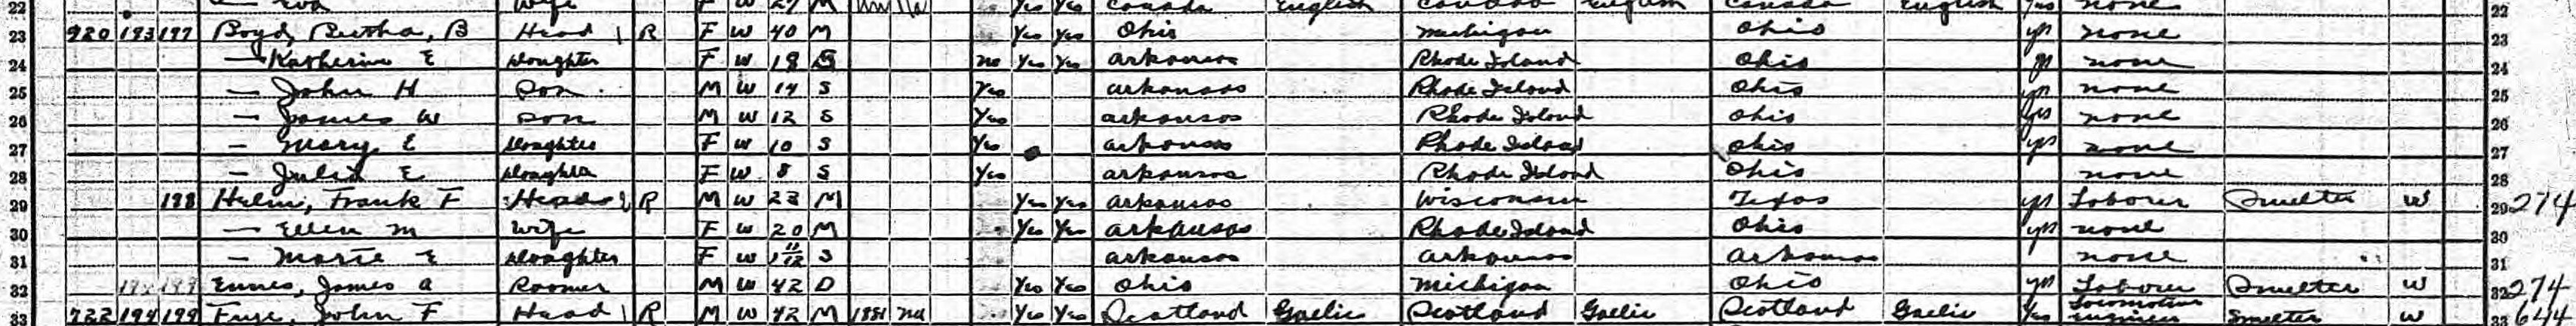 22 — Eva Wife F W 27 M Yes Yes Canada English Canada English Canada English Yes none 22
23 920 193 197 Boyd, Bertha, B Head R F W 40 M Yes Yes Ohio Michigan Ohio yes none 23
24 — Katherine E Daughter F W 18 S no Yes Yes Arkansas Rhode Island Ohio yes none 24
25 — John H Son M W 14 S Yes Arkansas Rhode Island Ohio yes none 25
26 — James W Son M W 12 S Yes Arkansas Rhode Island Ohio yes none 26
27 — Mary E Daughter F W 10 S Yes Arkansas Rhode Island Ohio yes none 27
28 — Julia E Daughter F W 8 S Yes Arkansas Rhode Island Ohio none 28
29 198 Helm, Frank F Head R M W 23 M Yes Yes Arkansas Wisconsin Texas yes Laborer Smelter W 29 274
30 — Ellen M Wife F W 20 M Yes Yes Arkansas Rhode Island Ohio yes none 30
31 — Marie E Daughter F W 1 11/12 S Arkansas Arkansas Arkansas none 31
32 Ennes, James A Roomer M W 42 D Yes Yes Ohio Michigan Ohio yes Laborer Smelter W 32 274
33 722 194 199 John F Head R M W 42 M 1881 na Yes Yes Scotland Gaelic Scotland Gaelic Scotland Gaelic Yes Locomotive Engineer Smelter W 33 644